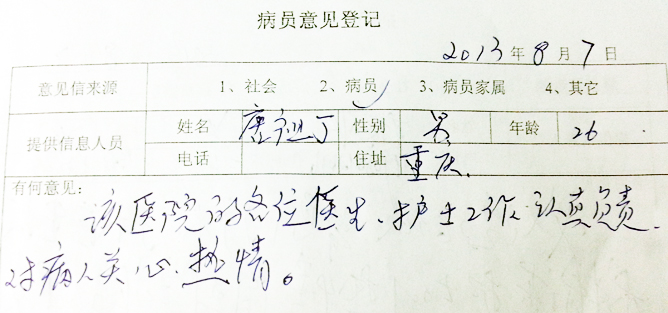 病员意见登记
2013年8月7日
意见信来源 1、社会 2、病员 3、病员家属 4、其它
提供信息人员 姓名 唐 丁 性别 男 年龄 26
电话 住址 重庆.
有何意见:
该医院的各位医生、护士工作认真负责.
对病人关心、热情。